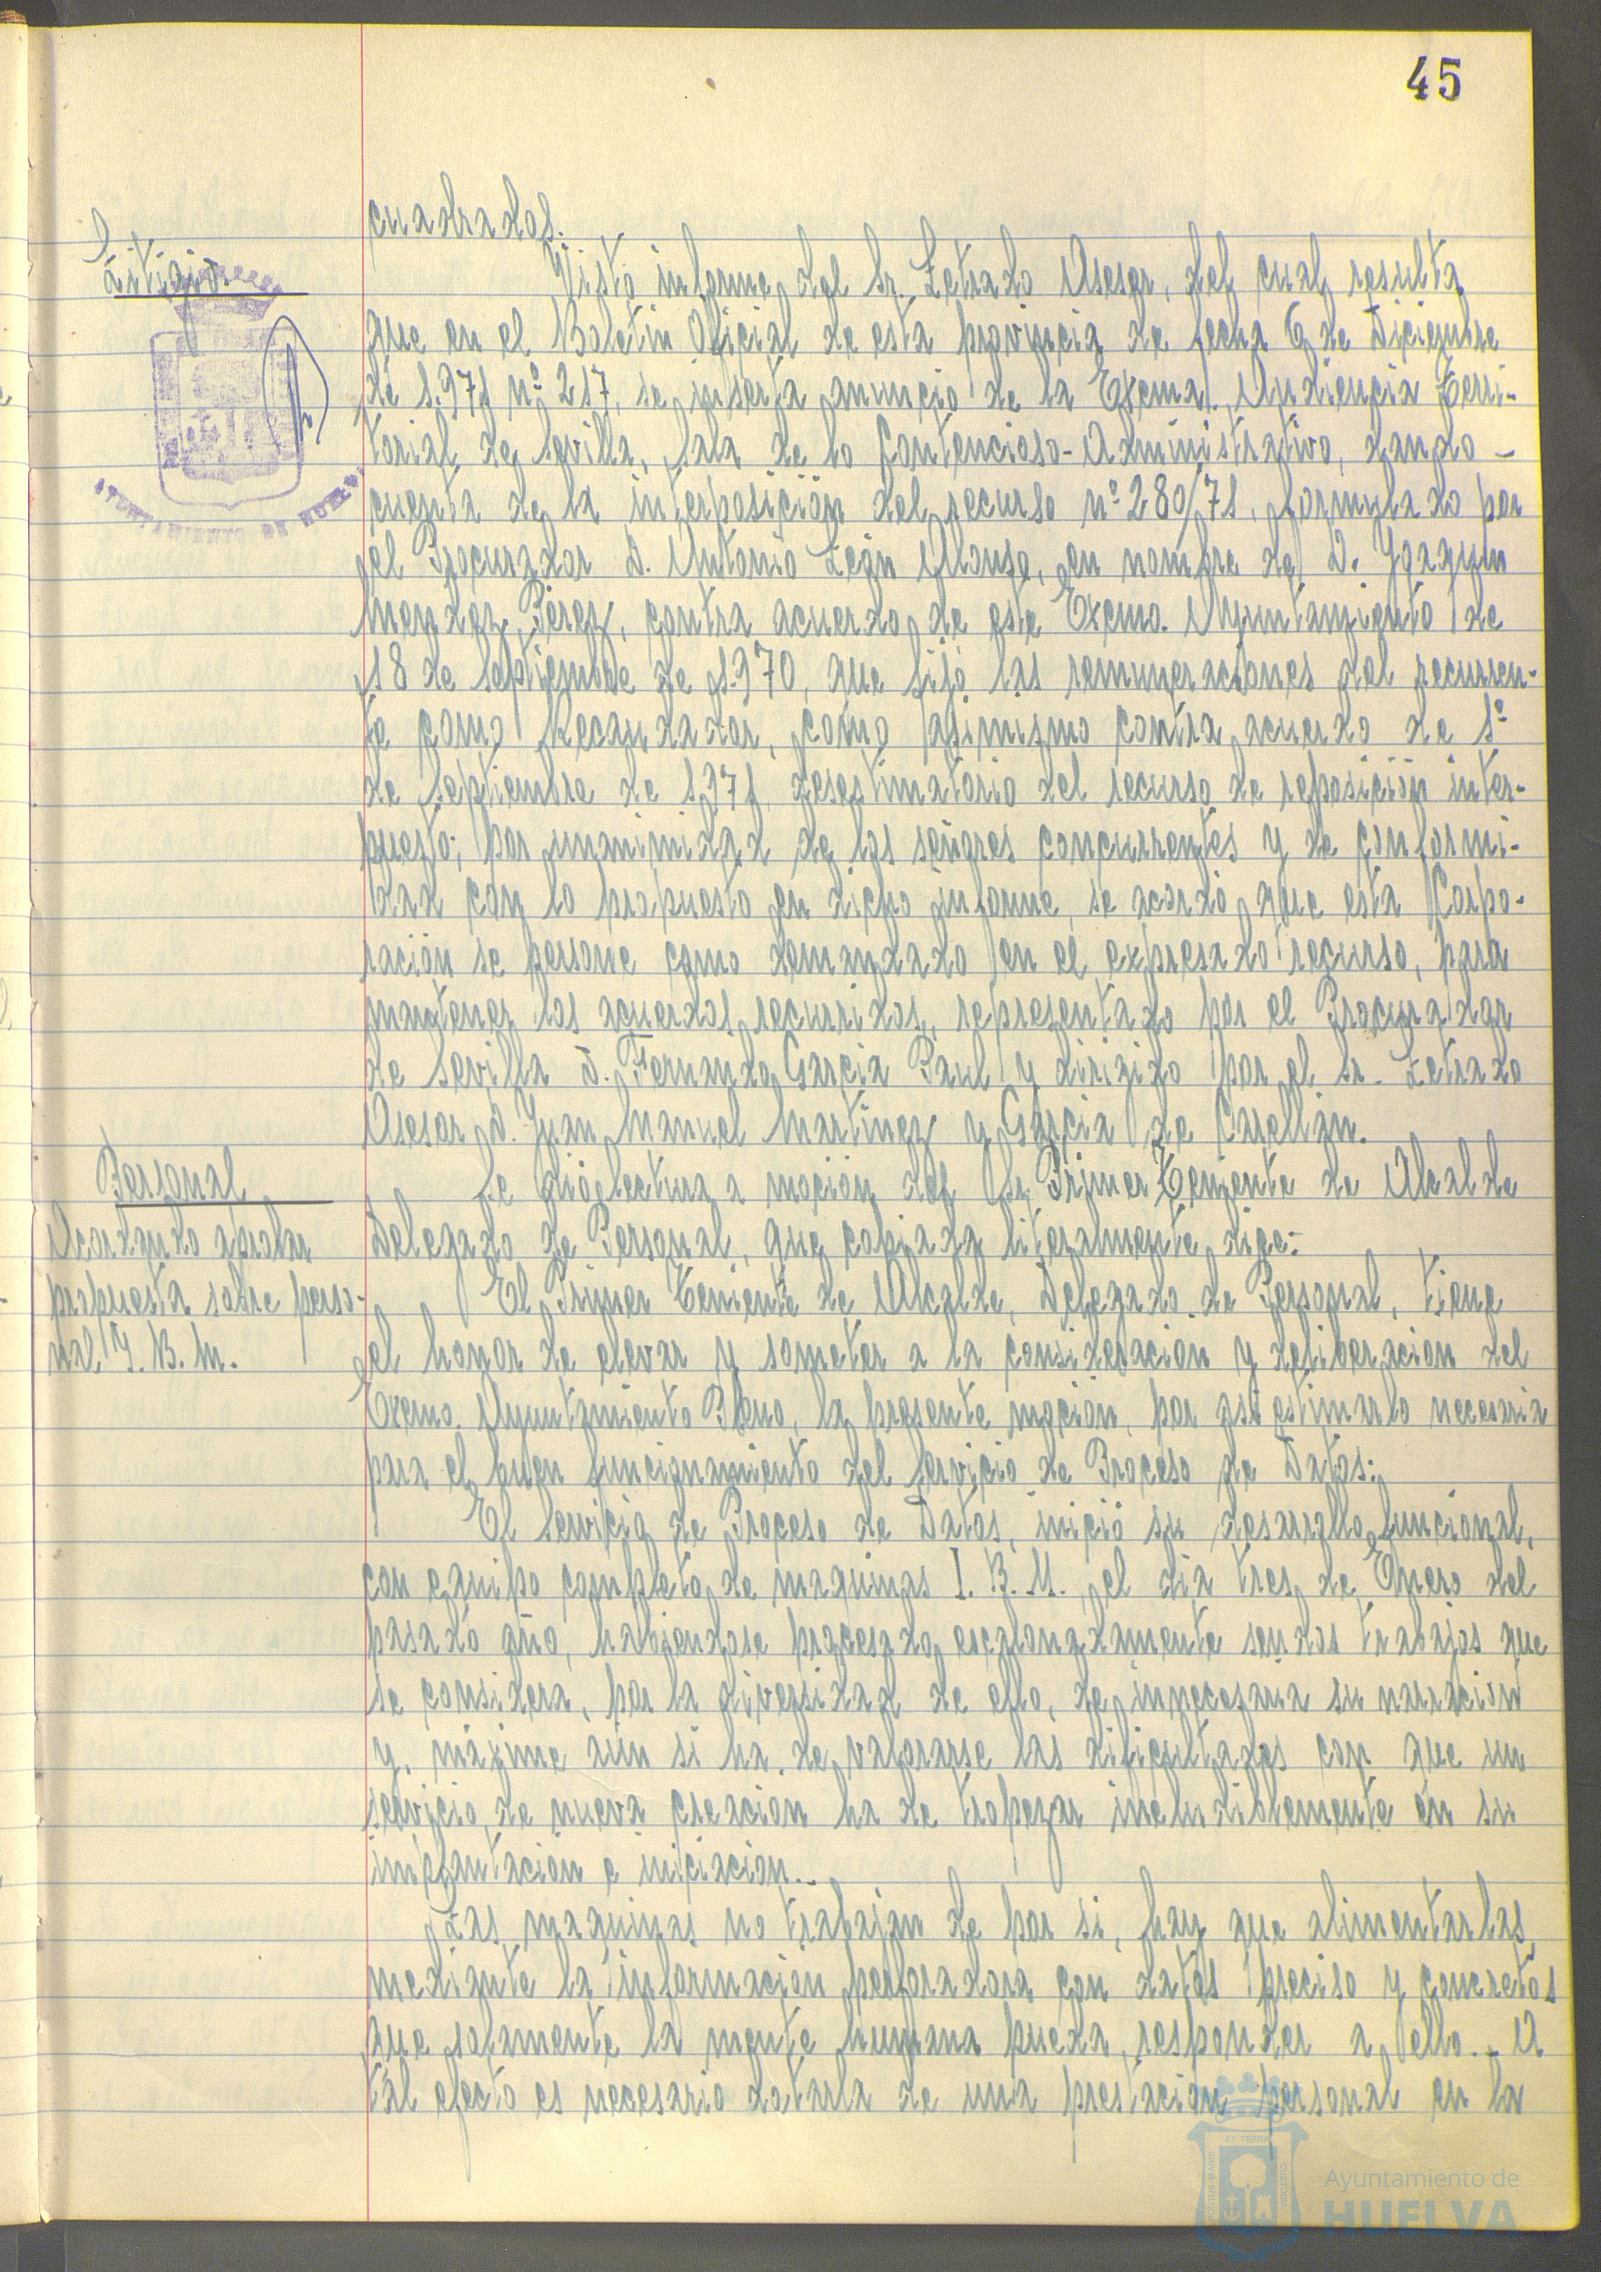 45
cuadrados.
Litigio
Visto informe del Sr. Letrado Asesor, del cual resulta
que en el Boletin Oficial de esta provincia de fecha 6 de Diciembre
de 1.971 nº 217, se inserta anuncio de la Excma. Audiencia Terri-
torial de Sevilla, Sala de lo Contencioso-Administrativo, dando
cuenta de la interposición del recurso nº 280/71, formulado por
el Procurador D. Antonio León Alonso, en nombre de D. Joaquin
Mendez Pérez, contra acuerdo de este Excmo. Ayuntamiento de
18 de Septiembre de 1.970, que fijó las remuneraciones del recurren-
te como Recaudador, como asimismo contra acuerdo de 1º
de Septiembre de 1.971, desestimatorio del recurso de reposición inter-
puesto; por unanimidad de los señores concurrentes y de conformi-
dad con lo propuesto en dicho informe, se acordó que esta Corpo-
ración se persone como demandado en el expresado recurso, para
mantener los acuerdos recurridos, representado por el Procurador
de Sevilla D. Fernando García Paul y dirigido por el Sr. Letrado
Asesor D. Juan Manuel Martínez y García de
AYUNTAMIENTO DE HUELVA
Personal
Acordando aprobar
propuesta sobre perso-
nal I. B. M.
Se dió lectura a moción del Sr. Primer Teniente de Alcalde
Delegado de Personal, que copiada literalmente dice:
El Primer Teniente de Alcalde, Delegado de Personal, tiene
el honor de elevar y someter a la consideración y deliberación del
Excmo. Ayuntamiento Pleno, la presente moción, por así estimarlo necesaria
para el buen funcionamiento del Servicio de Proceso de Datos:
El Servicio de Proceso de Datos, inició su desarrollo funcional,
con equipo completo de maquinas I. B. M., el dia tres de Enero del
pasado año, habiendose procesado escalonadamente sendos trabajos que
se considera, por la diversidad de ello, de innecesaria su narracion
y, máxime aún si ha de valorarse las dificultades con que un
servicio de nueva creacion ha de tropezar ineludiblemente en su
implantación e iniciacion.-
Las maquinas no trabajan de por si, hay que alimentarlas
mediante la información perforadora con datos preciso y concretos
que solamente la mente humana pueda responder a ello.- A
tal efecto es necesario dotarla de una prestación personal en la
ET TERRA
CUSTODIA
PORTUS MARIS
Ayuntamiento de
HUELVA